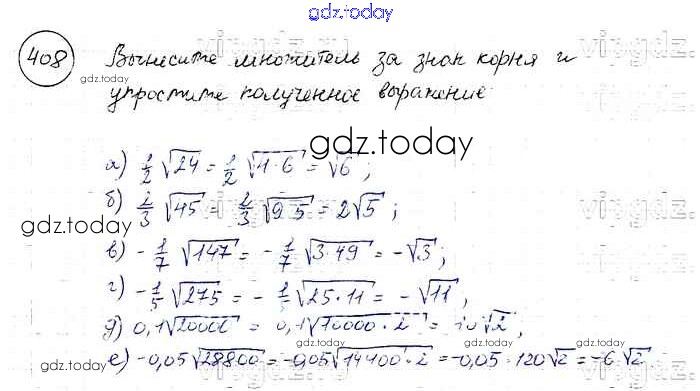 gdz.today
408 Вынесите множитель за знак корня и
упростите полученное выражение
gdz.today
gdz.today
а) 1/2 √24 = 1/2 √4·6 = √6 ;
б) 2/3 √45 = 2/3 √9 5 = 2√5 ;
gdz.today
в) -1/7 √147 = -1/7 √3·49 = -√3 ;
г) -1/5 √275 = -1/5 √25·11 = -√11 ,
д) 0,1√20000 = 0,1√10000·2 = 10√2 ,
е) -0,05√28800 = -0,05√14400·2 = -0,05·120√2 = -6√2
gdz.today
gdz.today